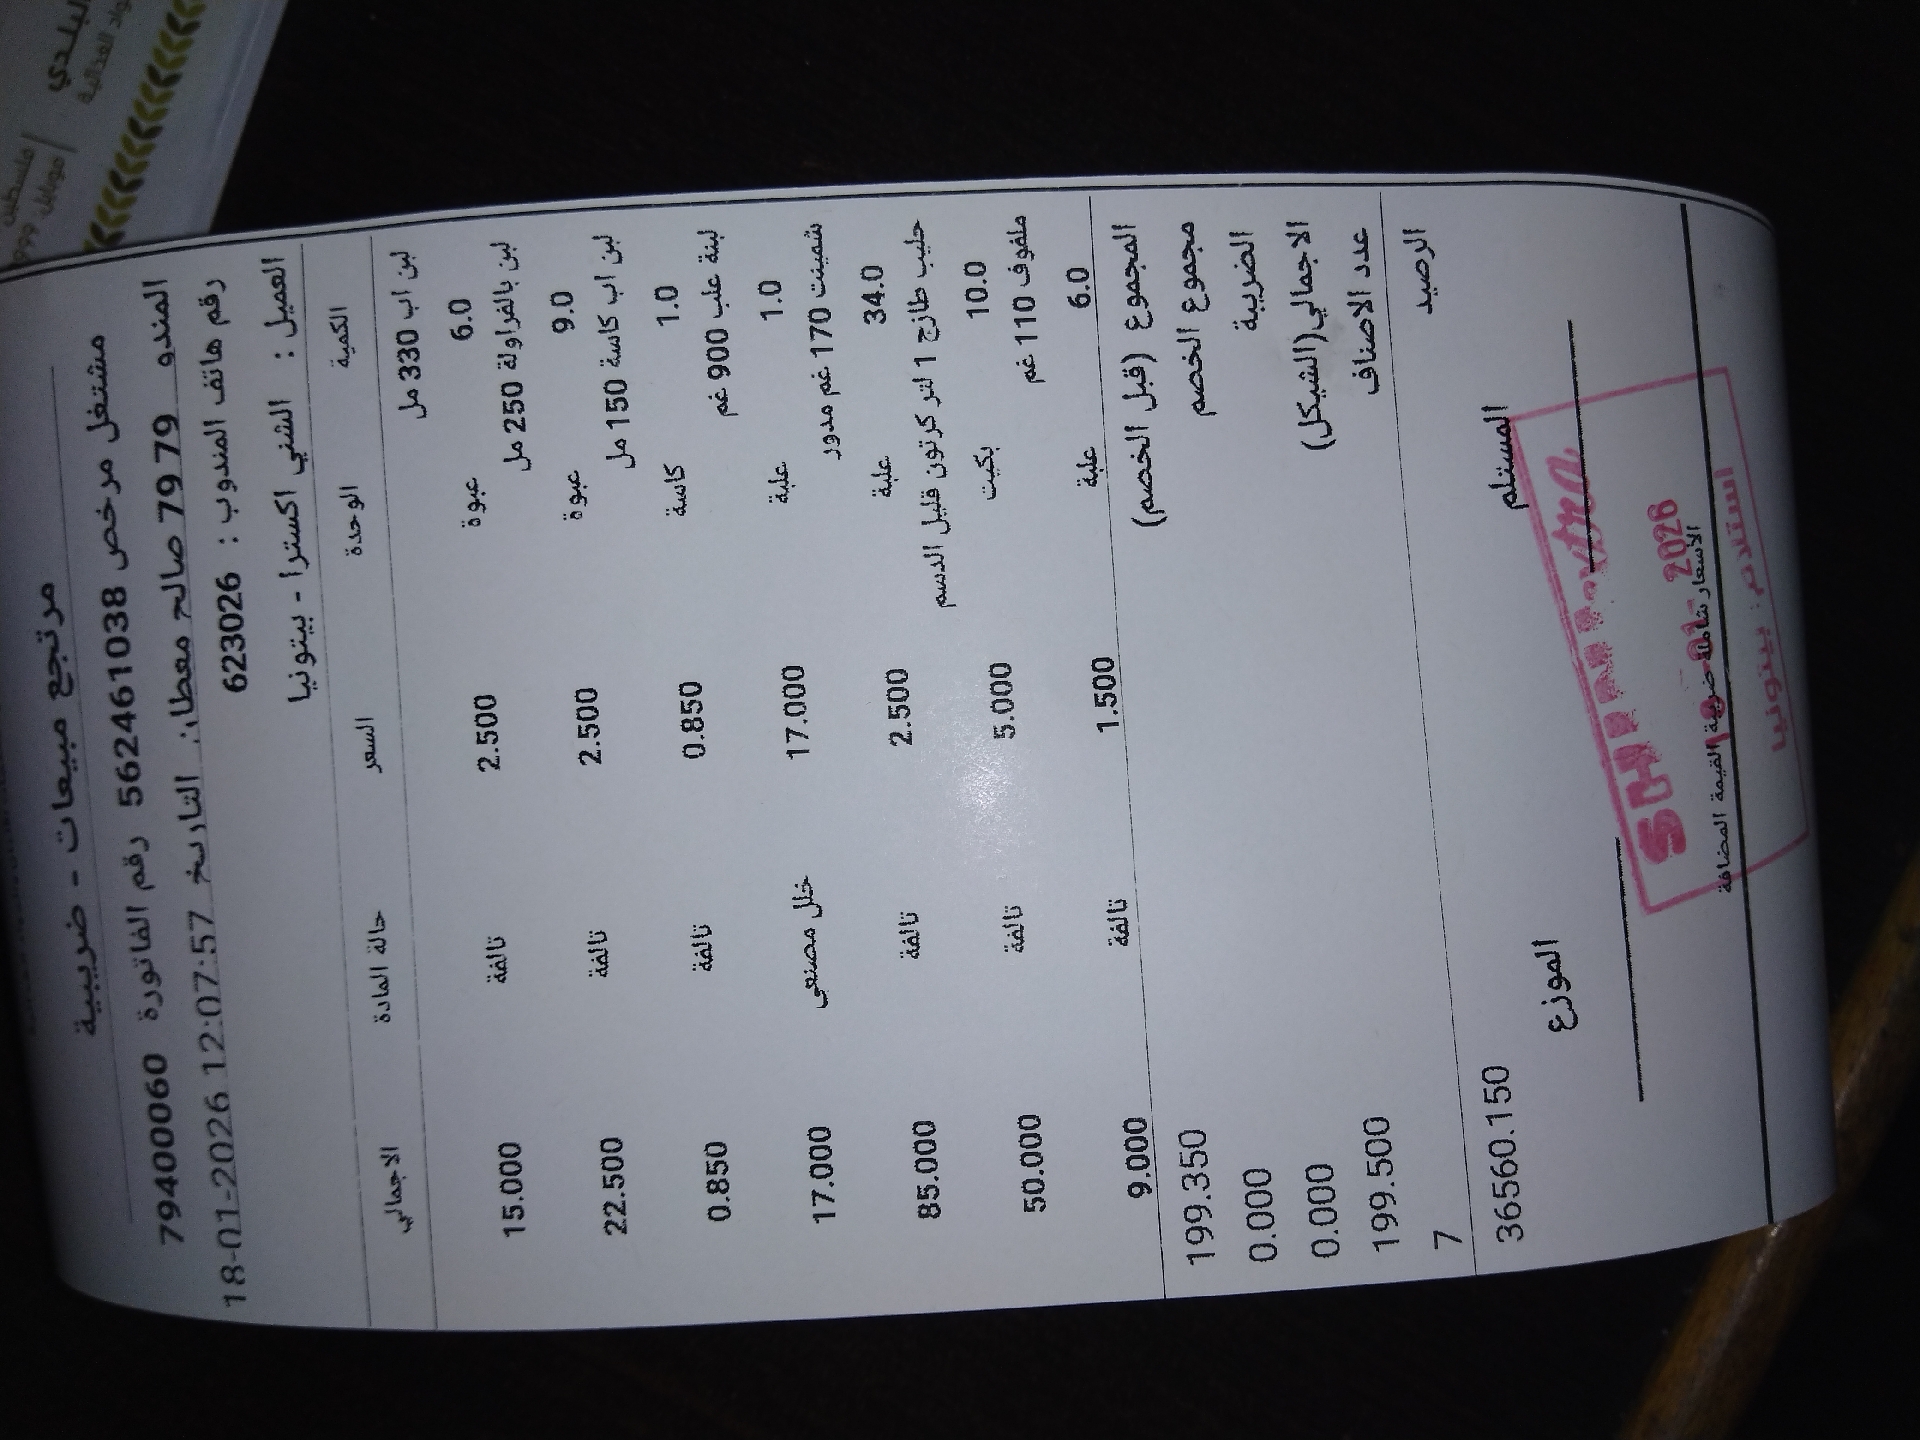 مرتجع مبيعات - ضريبية
مشتغل مرخص 562461038 رقم الفاتورة 79400060
المندو 79 79 صالح معطان التاريخ 18-01-2026 12:07:57
رقم هاتف المندوب : 623026
العميل : الشني اكسترا - بيتونيا
الكمية الوحدة السعر حالة المادة الاجمالي
لبن اب 330 مل
6.0 عبوة 2.500 تالفة 15.000
لبن بالفراولة 250 مل
9.0 عبوة 2.500 تالفة 22.500
لبن اب كاسة 150 مل
1.0 كاسة 0.850 تالفة 0.850
لبنة علب 900 غم
1.0 علبة 17.000 خلل مصنعي 17.000
شمينت 170 غم مدور
34.0 علبة 2.500 تالفة 85.000
حليب طازج 1 لتر كرتون قليل الدسم
10.0 بكيت 5.000 تالفة 50.000
ملفوف 110 غم
6.0 علبة 1.500 تالفة 9.000
المجموع (قبل الخصم) 199.350
مجموع الخصم 0.000
الضريبة 0.000
الاجمالي(الشيكل) 199.500
عدد الاصناف 7
الرصيد 36560.150
المستلم الموزع
الأسعار شاملة ضريبة القيمة المضافة
2026
استلام : بيتونيا
البلدي